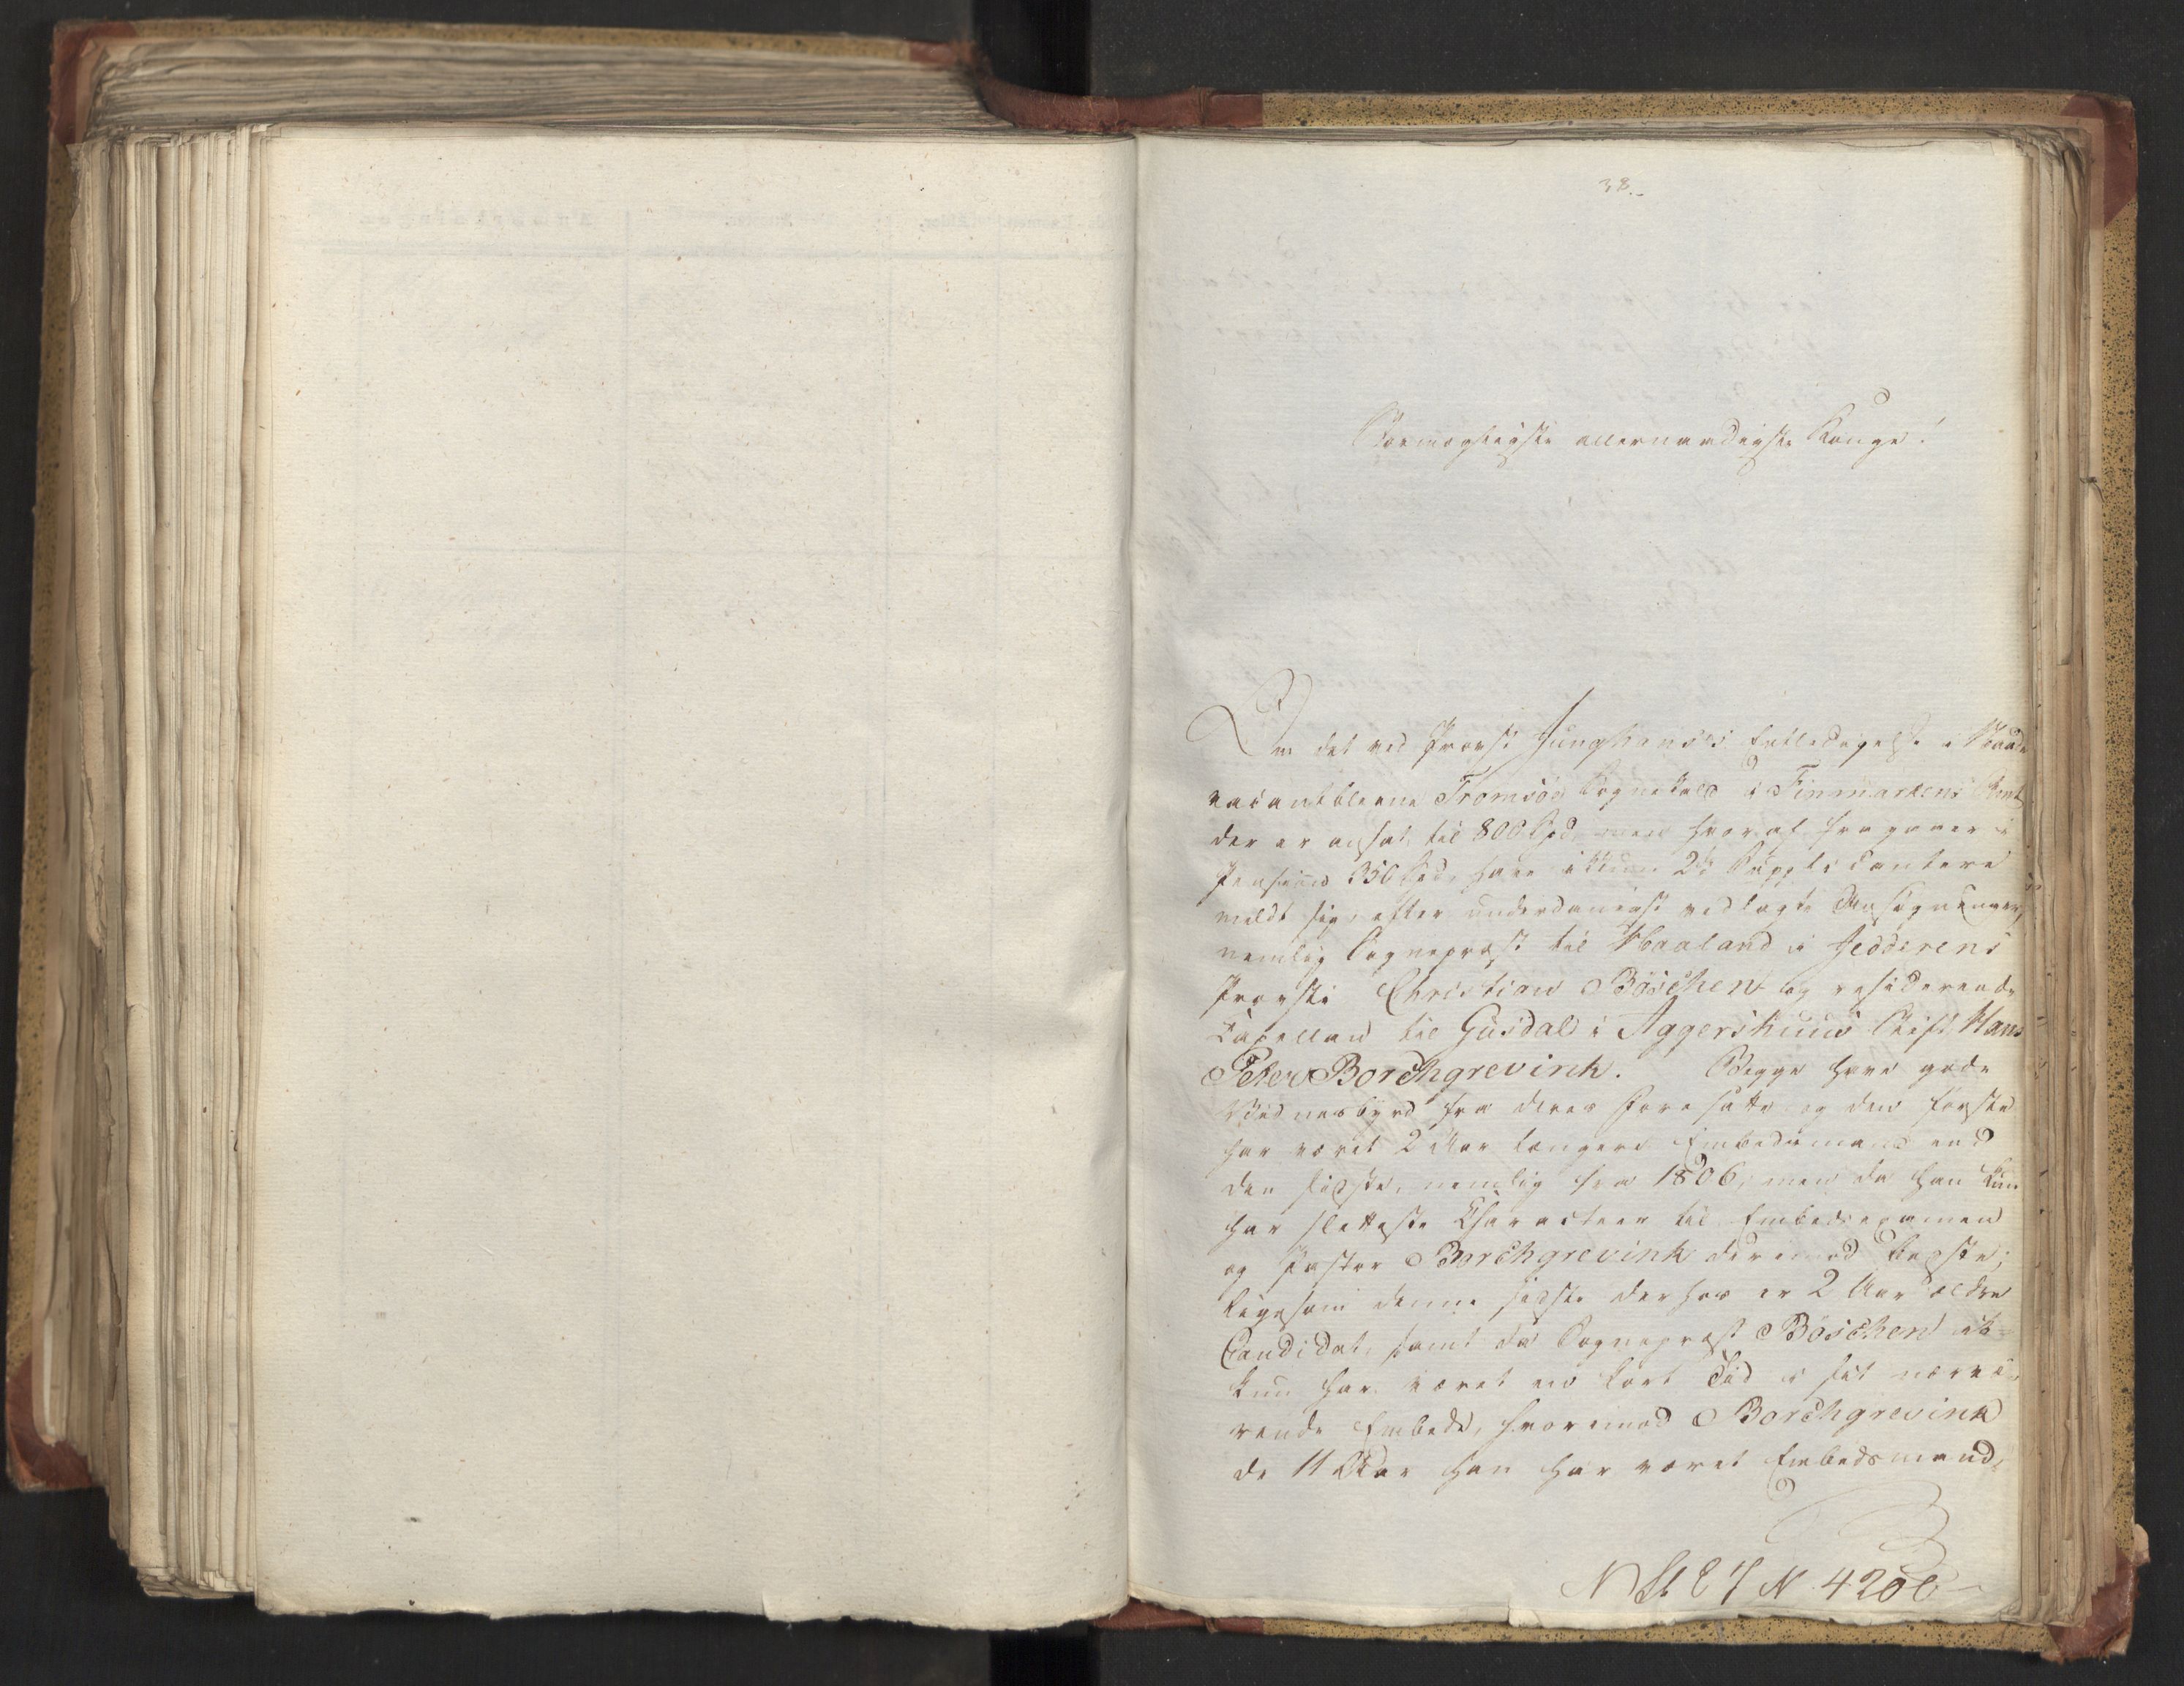 38.
Stormægtigste allernaadigste Konge!
Om det ved Provst Junghans's Entledigelse i Naade
vacantblevne Tromsöe Sognekald i Finmarkens Amt
der er ansat til 800 Spd, men hvoraf fragaaer i
Pension 350 Spd, have ikkun 2de Supplicantere
meldt sig, efter underdanigst vedlagte Ansøgninger,
nemlig Sognepræst til Haaland i Jedderens
Provsti Christian Böschen og residerende
Capellan til Gusdal i Aggershuus Stift Hans
Peter Borchgrevink. Begge have gode
Vidnesbyrd fra deres Foresatte og den første
har været 2 Aar længere Embedsmand end
den sidste, nemlig fra 1806; men da han kun
har sletteste Characteer til Embedsexamen
og Pastor Borchgrevink derimod bedste;
ligesom denne sidste derhos er 2 Aar ældre
Candidat, samt da Sognepræst Böschen ik-
kun har været en kort Tid i sit nærvæ-
rende Embede, hvorimod Borchgrevink
de 11 Aar han har været Embedsmand,
N 4200